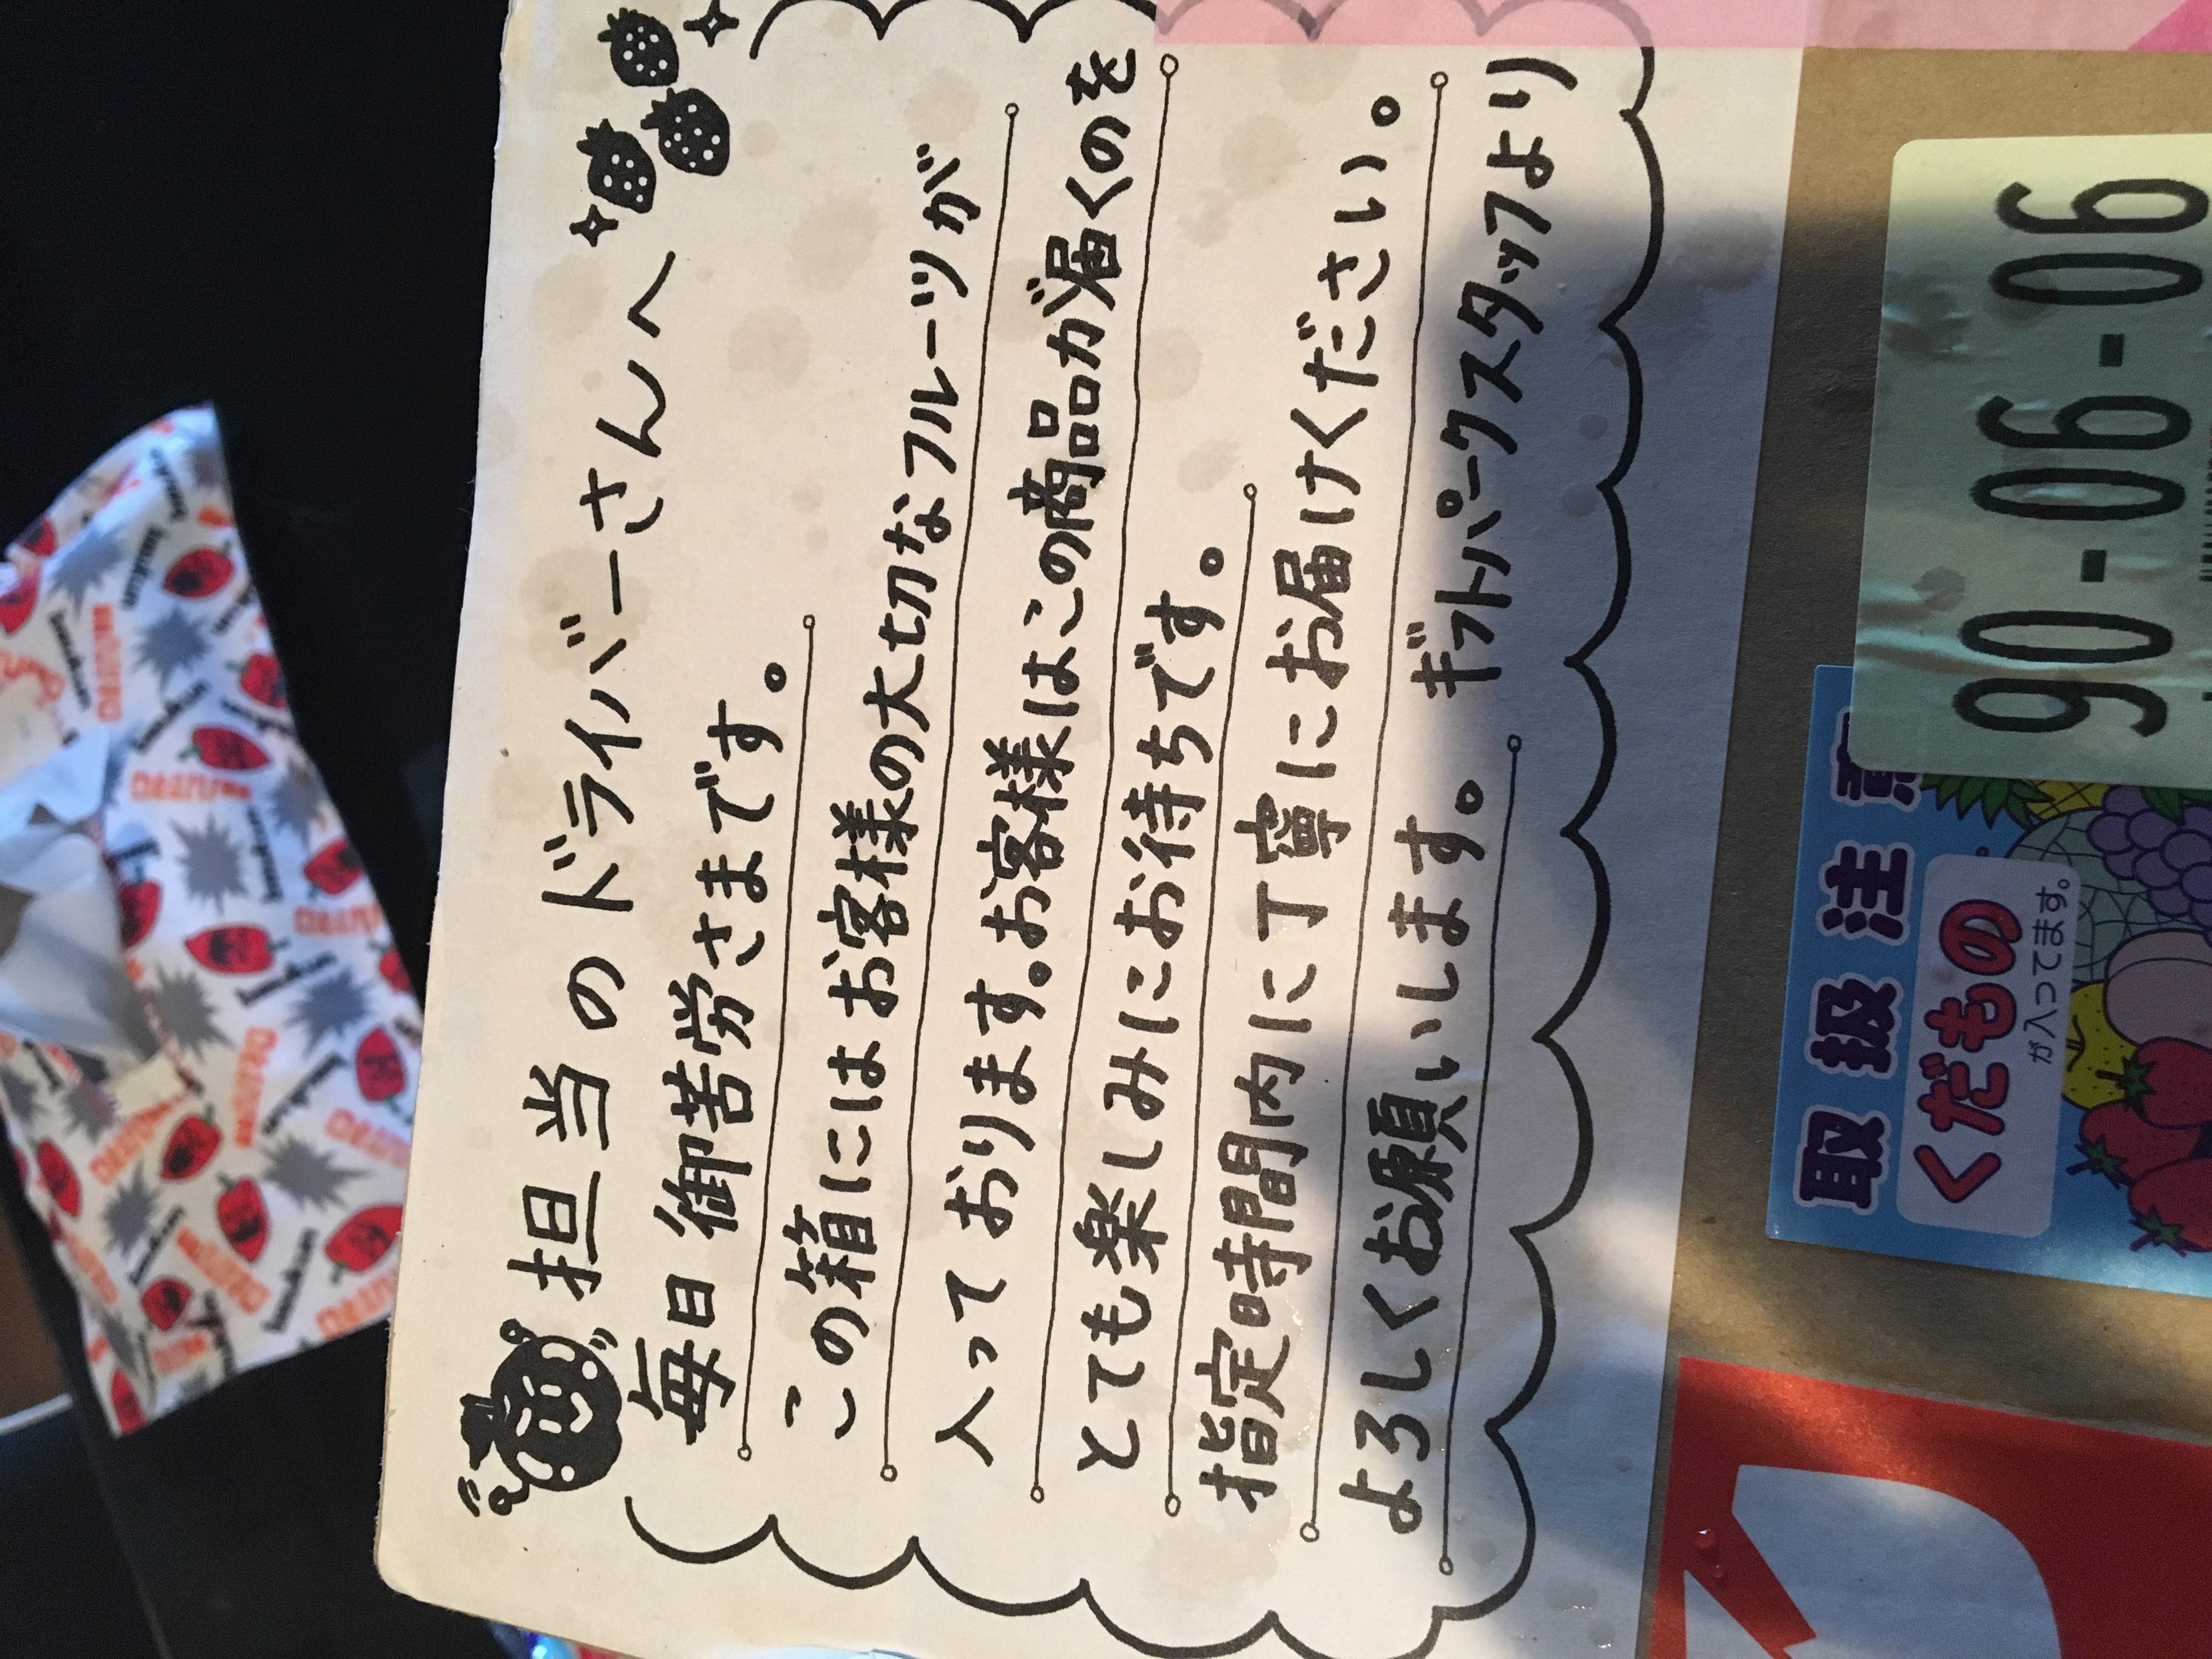 担当のドライバーさんへ
毎日御苦労さまです。
この箱にはお客様の大切なフルーツが
入っております。お客様はこの商品が届くのを
とても楽しみにお待ちです。
指定時間内に丁寧にお届けください。
よろしくお願いします。 ギフトパークスタッフより
取扱注意
くだもの
が入ってます。
90-06-06